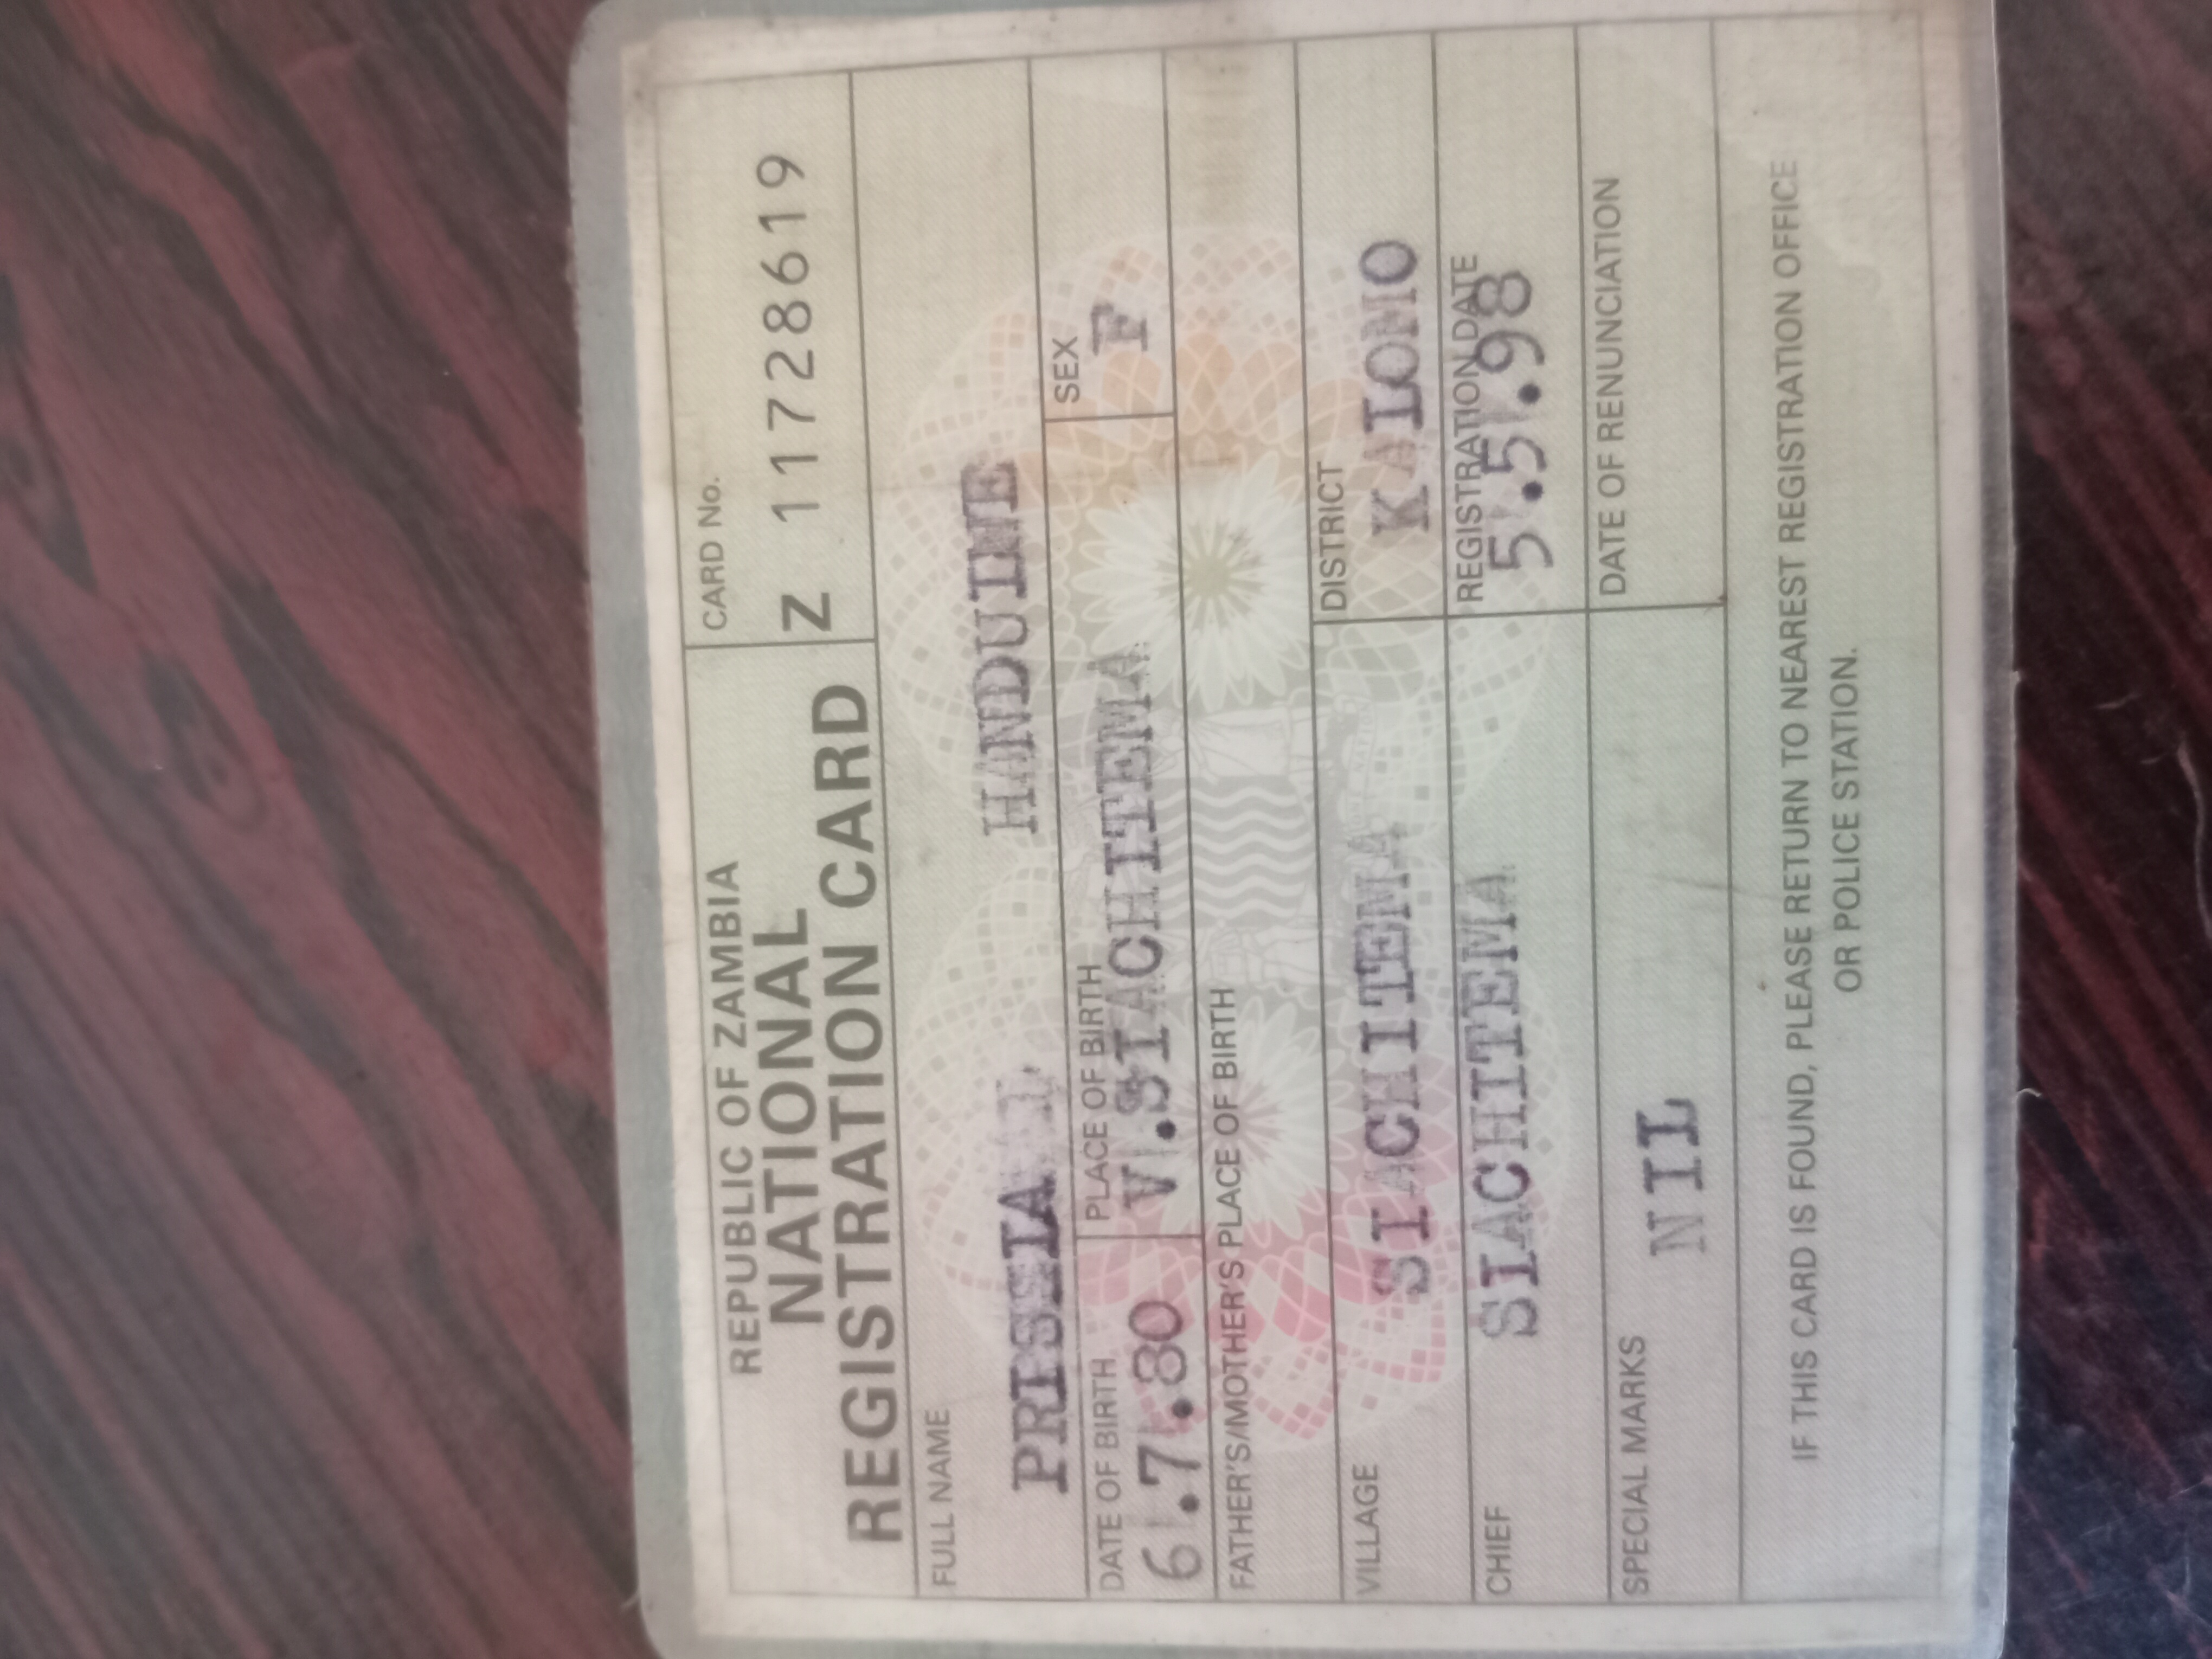 REPUBLIC OF ZAMBIA
NATIONAL
REGISTRATION CARD
CARD No.
Z 11728619
FULL NAME
HANDUINE
DATE OF BIRTH
6.7.80
PLACE OF BIRTH
V.SIACHITEMA
SEX
F
FATHER'S/MOTHER'S PLACE OF BIRTH
VILLAGE
SIACHITEMA
DISTRICT
KALOMO
CHIEF
SIACHITEMA
REGISTRATION DATE
5.5.98
SPECIAL MARKS
NIL
DATE OF RENUNCIATION
IF THIS CARD IS FOUND, PLEASE RETURN TO NEAREST REGISTRATION OFFICE
OR POLICE STATION.